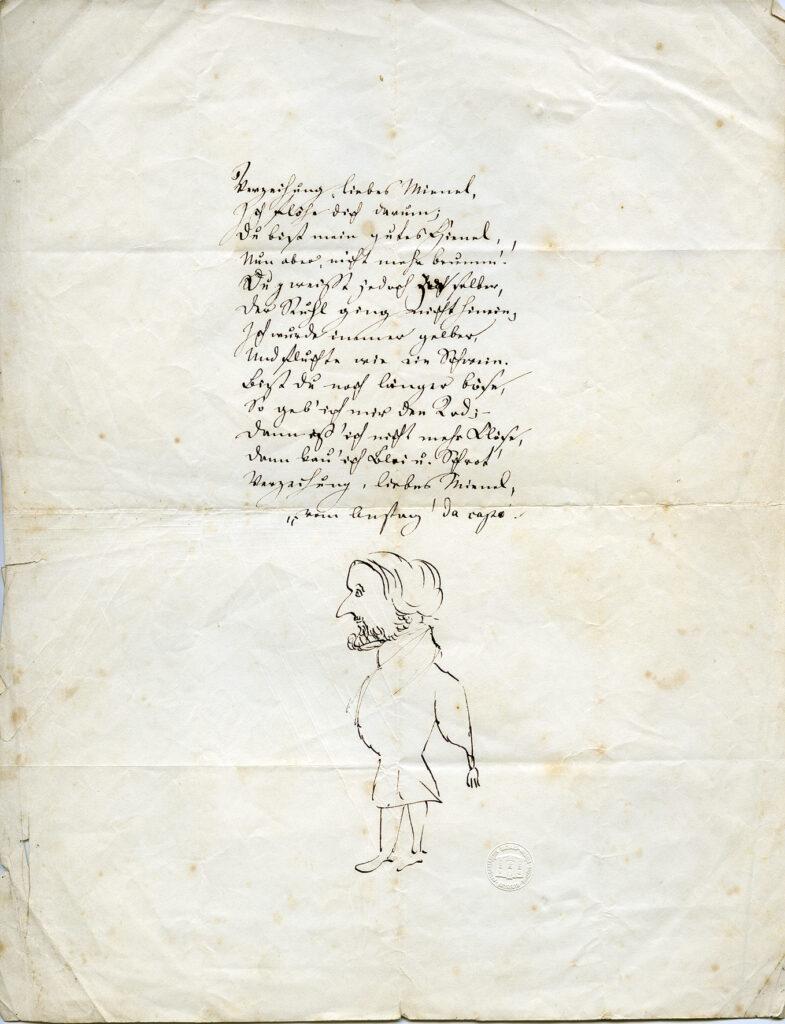 Verzeihung, liebes Mienel,
Ich flöhe dich darum;
Du bist mein gutes Bienel,
Nun aber, nicht mehr brumm'!
Du weißt jedoch selber,
Der Stuhl ging nicht hinein;
Ich wurde immer gelber,
Und fluchte wie ein Schwein.
Bist du noch länger böse,
So geb' ich mir den Tod;–
Dann eß' ich nicht mehr Klöse,
Dann kau' ich Blei u. Schrot
Verzeihung, liebes Mienel,
vom Anfang! da capo!